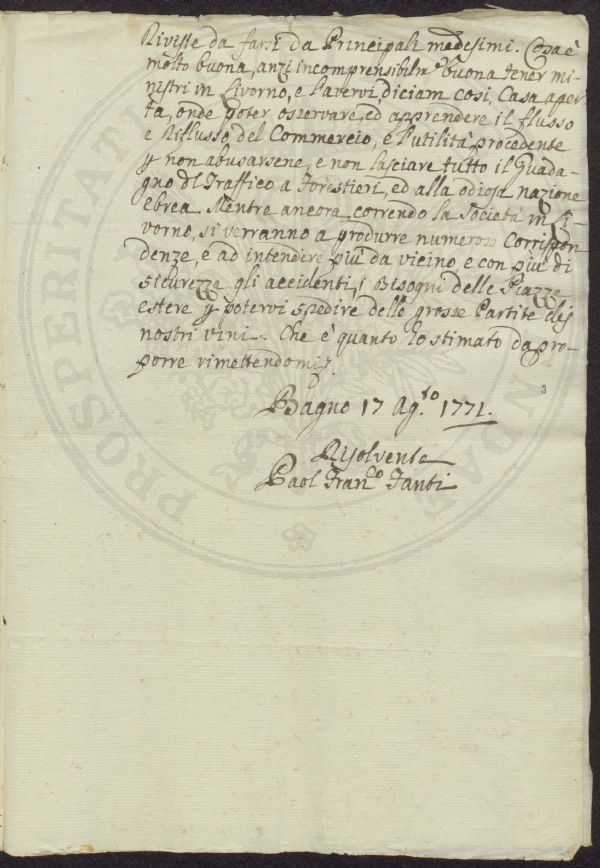 Riviste da farsi da Principali medesimi. Cosa è
molto buona, anzi incomprensibilm.e buona tener mi-
nistri in Livorno, e l'avervi, diciam così, Casa aper
ta, onde poter osservare, ed apprendere il flusso
e Riflusso del Commercio, e l'utilità procedente
p non abusarsene, e non lasciare tutto il Guada-
gno dl Traffico a Forestieri, ed alla odiosa nazione
Ebrea. Mentre ancora, correndo la Società in Li-
vorno, si verranno a produrre numerose Corrispon
denze, e ad intendere più da vicino e con più di
sicurezza gli accidenti, i Bisogni delle Piazze
estere p potervi spedire delle grosse Partite di
nostri vini. Che è quanto ho stimato da pro-
porre rimettendomi
3
Bagno 17 Ag.to 1771.
Risolvente
Paol Fran.co Fanti
PROSPERITATI